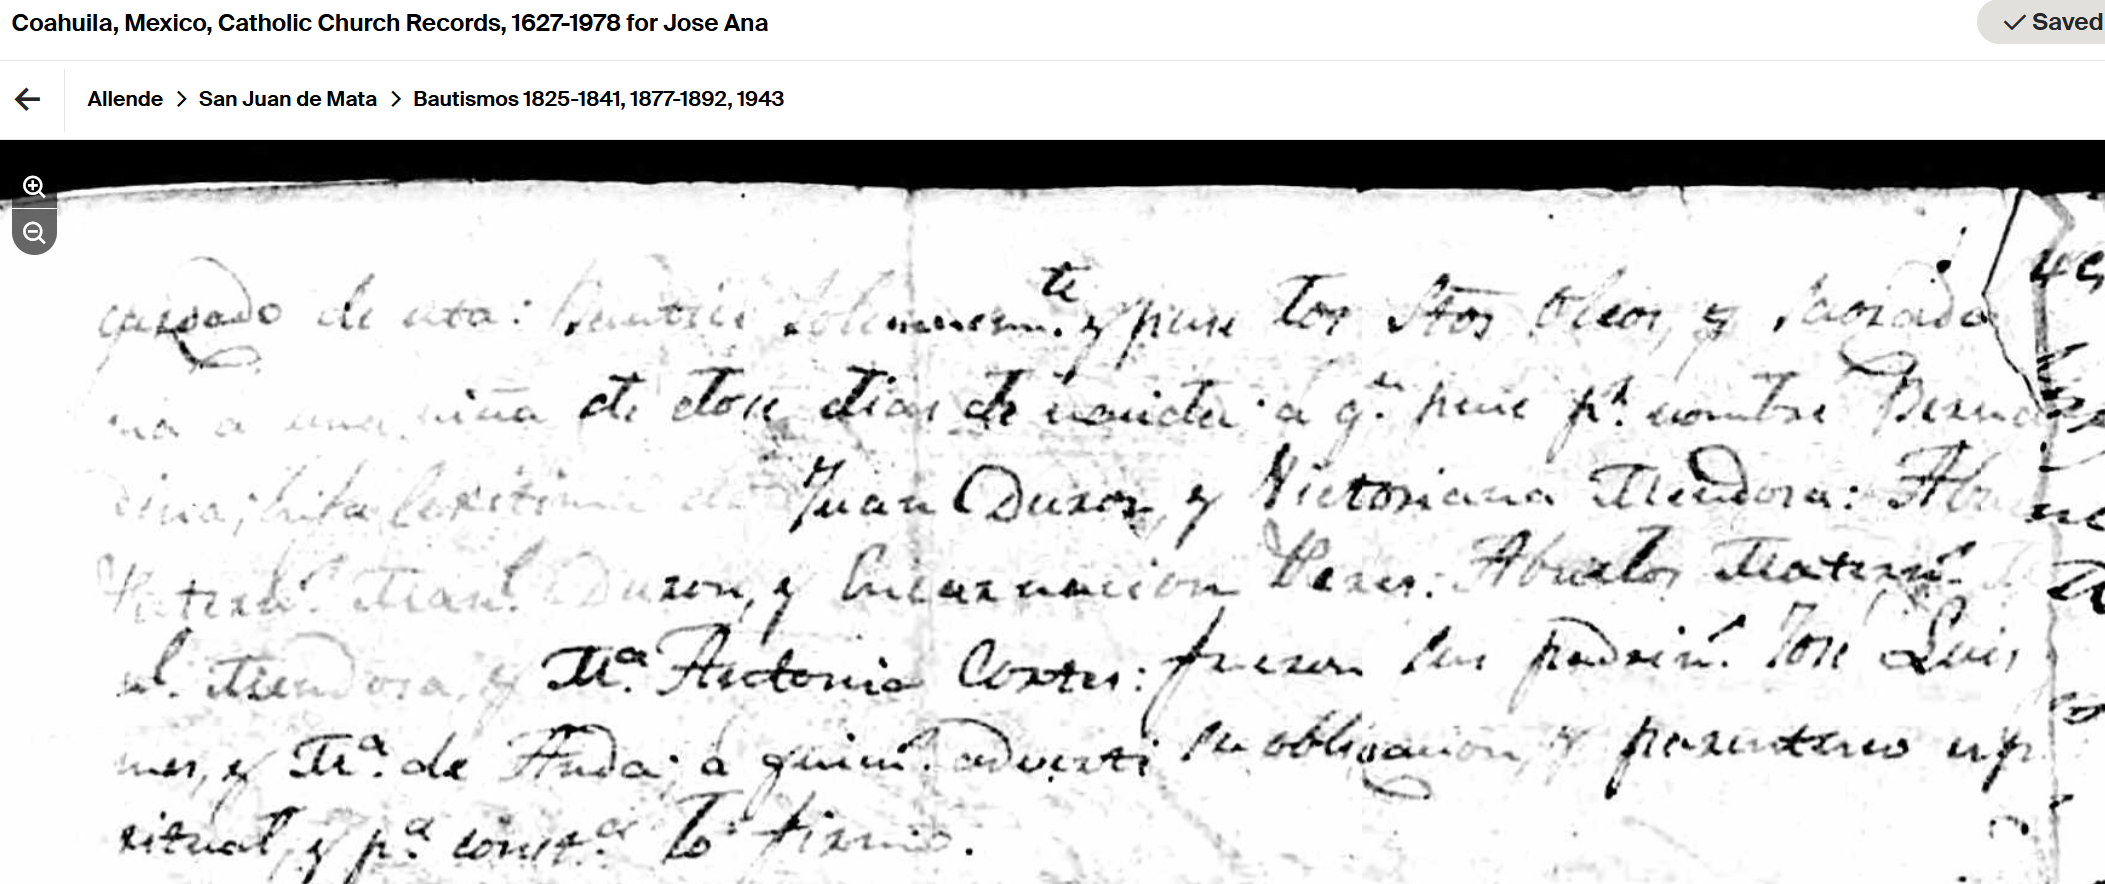 Coahuila, Mexico, Catholic Church Records, 1627-1978 for Jose Ana
Saved
Allende > San Juan de Mata > Bautismos 1825-1841, 1877-1892, 1943
de esta: Bautisé solemnem.te y puse los Stos Oleos, y Sagrado
a una niña de dose dias de nacida: á q.n puse p.r nombre Berna
dina, hija lexitima de Juan Duron, y Victoriana Mendosa: Abu
Patern.s Man.l Duron, y Encarnacion Peres: Abuelos Matern.s
el. Mendosa, y M.a Antonia Cortes: fueron sus padrin.s José Luis
mes, y M.a de Anda: á quien.s adverti su obligacion, y parentesco esp
ritual, y p.a const.a lo firmo.